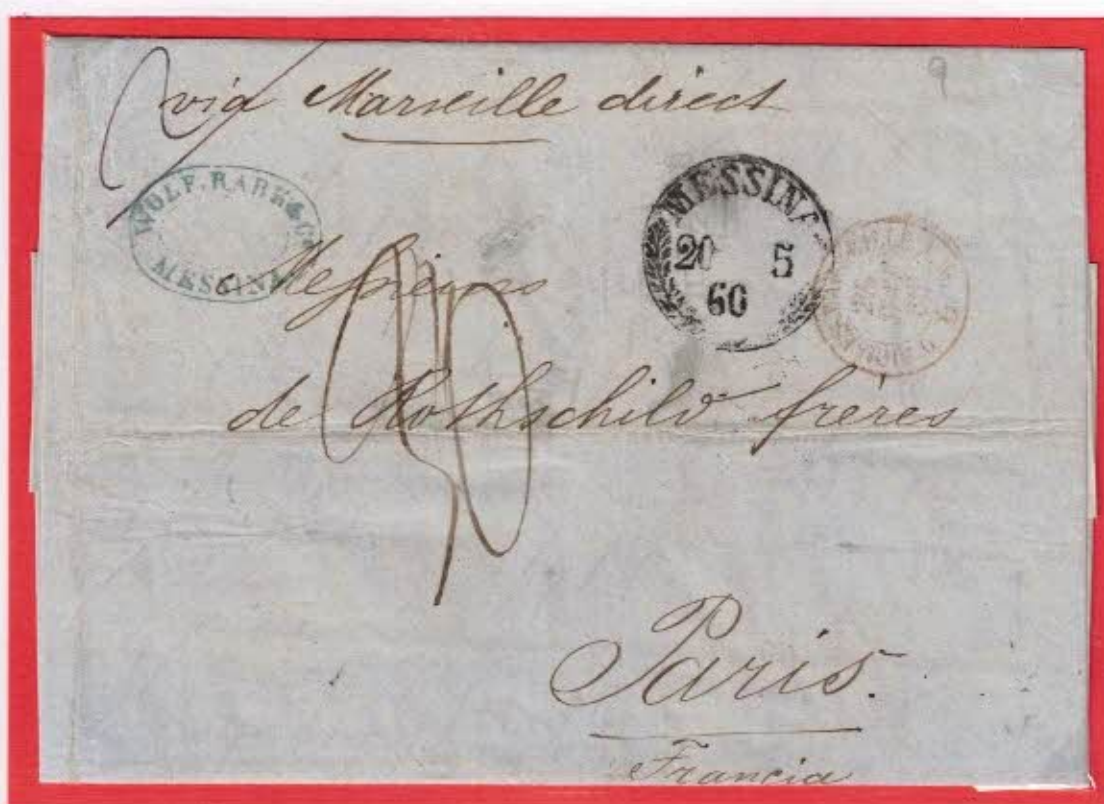 9
via Marseille direct
WOLF. RABE & Co
MESSINA
MESSINA
20 5
60
Messieurs
de Rothschild frères
Paris.
Francia